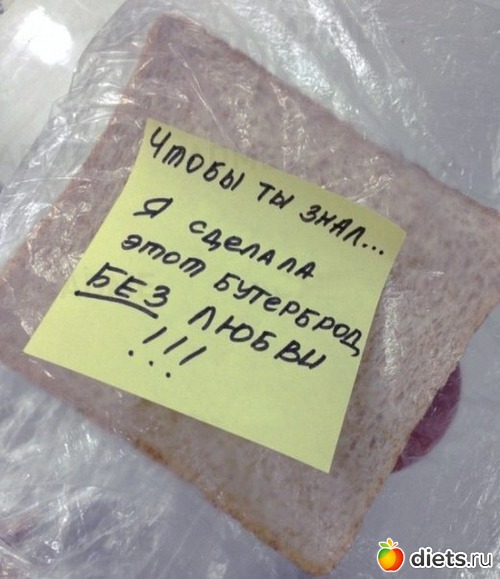 Чтобы ты знал...
Я сделала
этот бутерброд
БЕЗ любви
!!!
diets.ru